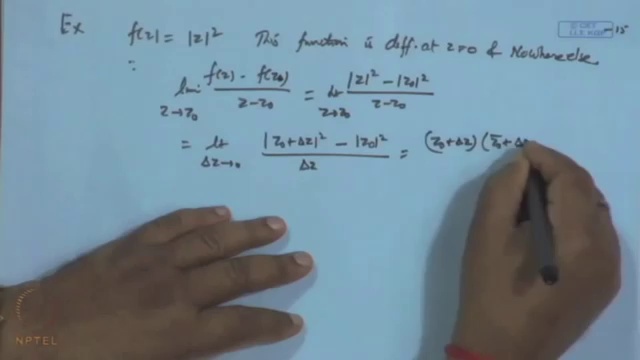 Ex f(z) = |z|² This function is diff. at z=0 & Nowhere else
∵ lim z→z₀ (f(z) - f(z₀))/(z-z₀) = lt z→z₀ (|z|² - |z₀|²)/(z-z₀)
= lt Δz→0 (|z₀+Δz|² - |z₀|²)/Δz = (z₀+Δz)(z̄₀+Δ
© CET
I.I.T. KGP
NPTEL